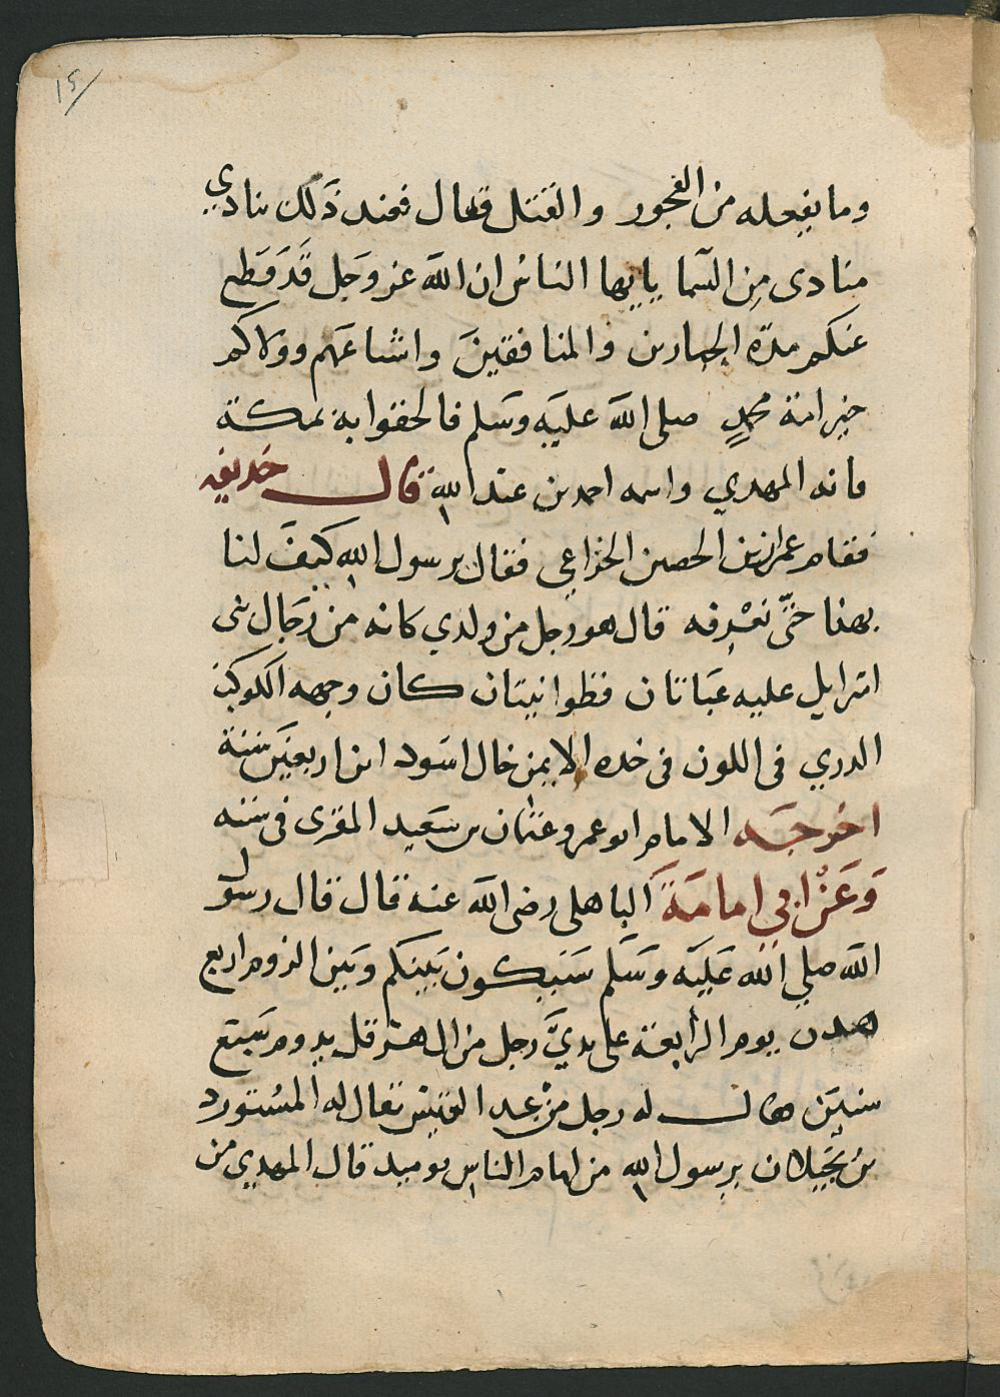 ١٥
وما يفعله من الفجور والقتل فقال فعند ذلك ينادي
منادى من السما يا يها الناس ان الله عز وجل قد قطع
عنكم مدة الجبارين والمنافقين واشياعهم وولاكم
خير امة محمد صلى الله عليه وسلم فالحقوا به بمكة
فانه المهدي واسمه احمد بن عبد الله قال حذيفه
فقام عمران بن الحصين الخزاعي فقال يرسول الله كيف لنا
بهذا حتى نعرفه قال هو رجل من ولدي كانه من رجال بنى
اسرايل عليه عباتان قطوانيتان كان وجهه الكوكب
الدري في اللون في خده الايمن خال اسود ابن اربعين سنة
اخرجه الامام ابو عمرو عثمان بن سعيد المقرى في سننه
وعن ابي امامة الباهلى رضى الله عنه قال قال رسول
الله صلي الله عليه وسلم سيكون بينكم وبين الروم اربع
هدن يوم الرابعة على يدي رجل من ال هرقل يدوم سبع
سنين فقال له رجل من عبد القيس يقال له المستورد
بن يرسول الله من امام الناس يوميد قال المهدي من